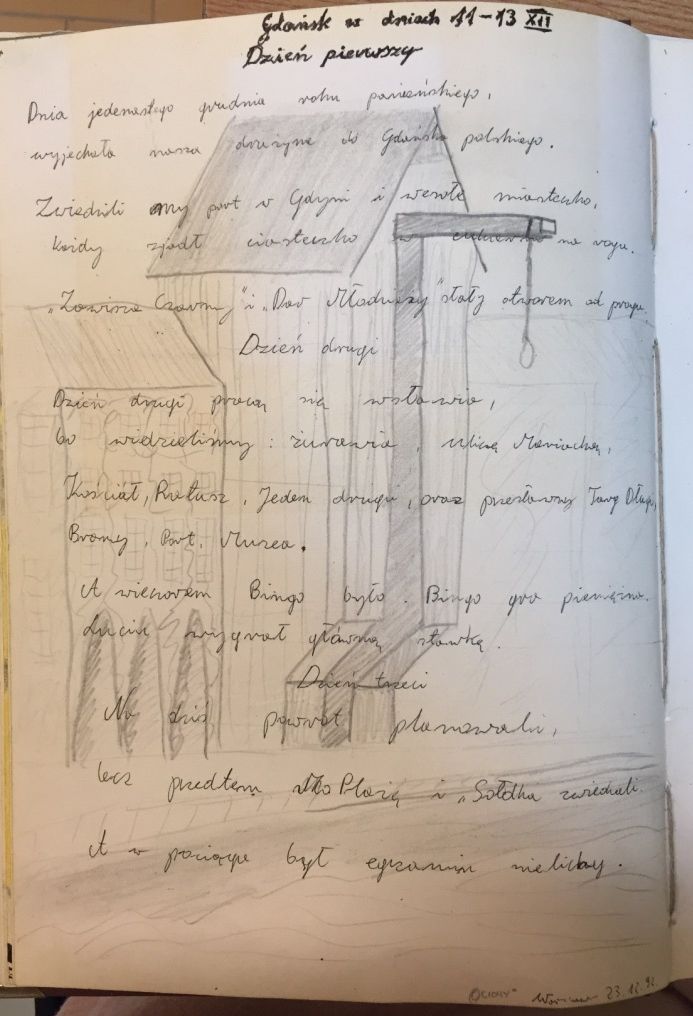 Gdańsk w dniach 11-13 XII
Dzień pierwszy
Dnia jedenastego grudnia roku pańskiego,
wyjechała nasza drużyna do Gdańska polskiego.
Zwiedzili my port w Gdyni i wesołe miasteczko,
każdy zjadł ciasteczko w cukierni na rogu.
„Zawisza Czarny" i „Dar Młodzieży" stały otworem od progu.
Dzień drugi
Dzień drugi pracą się wsławia,
bo widzieliśmy: żurawia, ulicę Mariacką,
Kościół, Ratusz, Jeden drugi, oraz przesławny Targ Długi,
Bramy, Port, Muzea.
A wieczorem Bingo było. Bingo gra pieniężna.
Lucia wygrał główną stawkę.
Dzień trzeci
Na dziś powrót planowali,
lecz przedtem Plażę i „Sołdka zwiedzali.
A w pociągu był egzamin nielichy.
Warszawa 23.12.92.